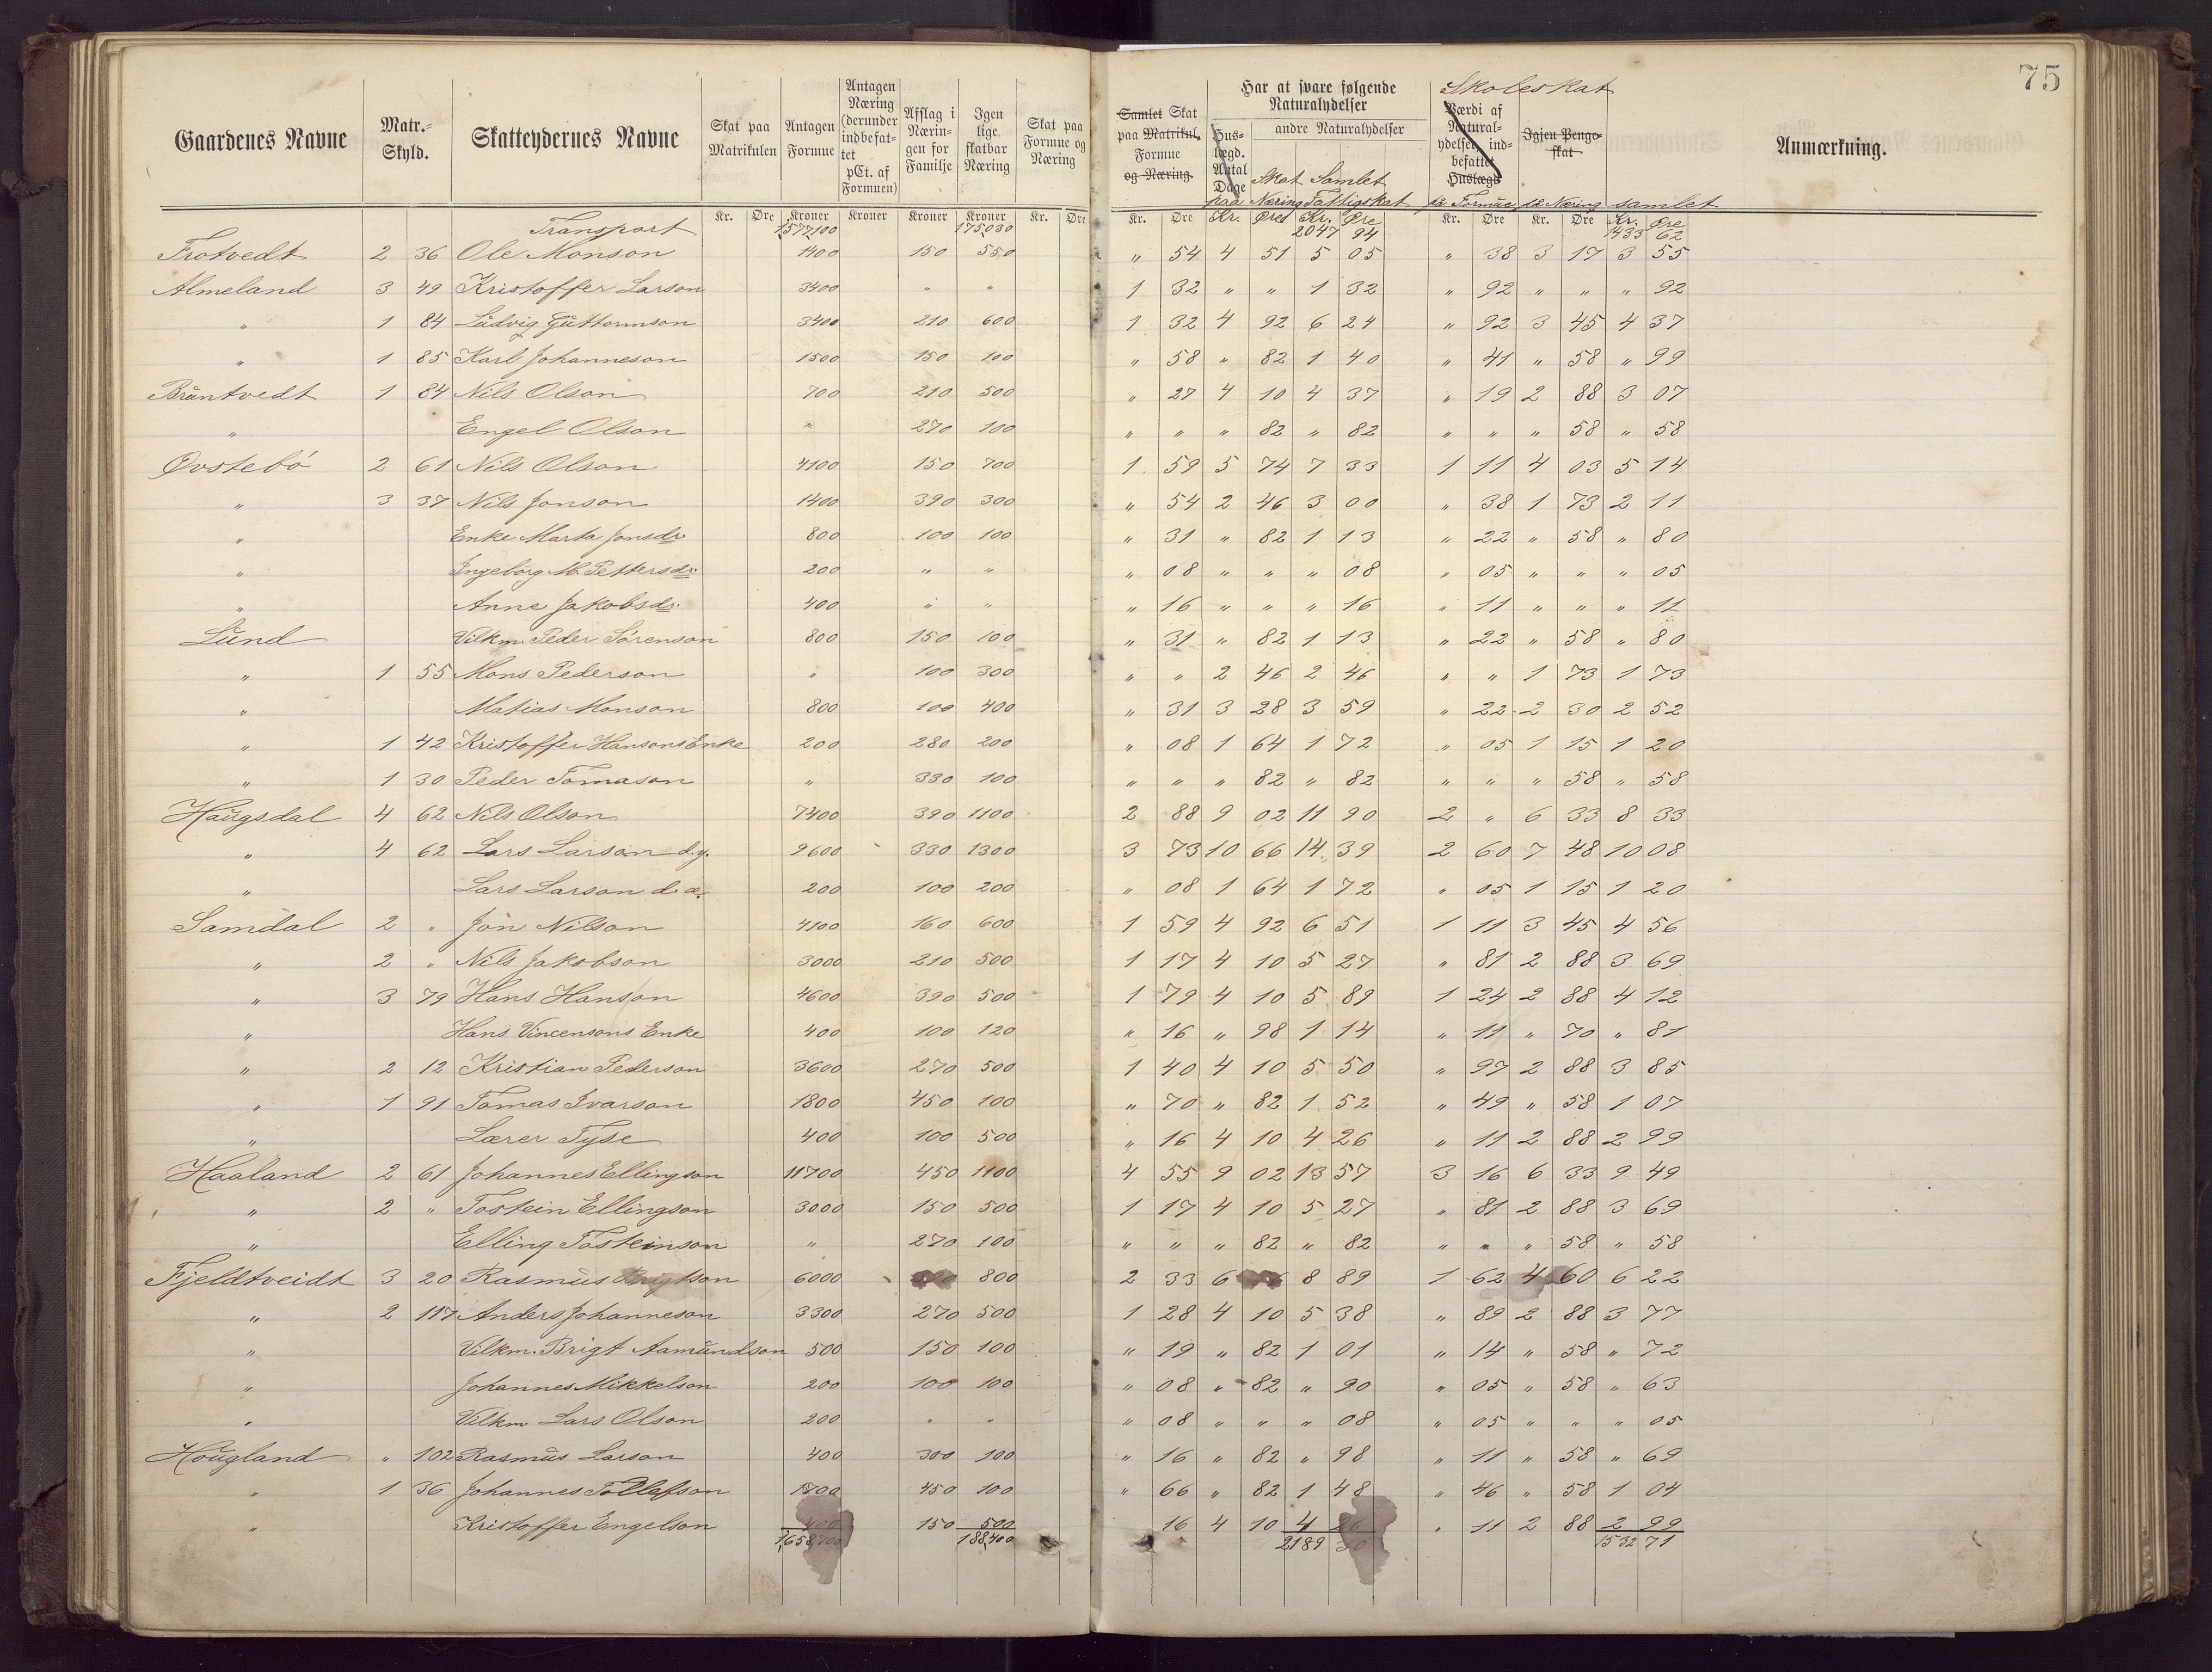 75
Gaardenes Navne | Matr.-Skyld. | Skatteydernes Navne | Skat paa Matrikulen | Antagen Formue | Antagen Næring (derunder indbefattet pCt. af Formuen) | Afslag i Næringen for Familje | Igen lige skatbar Næring | Skat paa Formue og Næring | Samlet Skat paa Matrikul, Formue og Næring. | Har at svare følgende Naturalydelser | Huslægd. Antal Dage | andre Naturalydelser | Skat paa Næring | Samlet Fattigskat | Skoleskat | Værdi af Naturalydelser indbefattet Huslægd | på Formue | Igjen Pengeskat | på Næring | samlet | Anmærkning.
Kr. Øre Kroner Kroner Kroner Kroner Kr. Øre Kr. Øre Kr. Øre Kr. Øre Kr. Øre Kr. Øre Kr. Øre
Transport 1577100 175030 2047 94 1433 62
Trotvedt 2 36 Ole Monson 1400 150 550 " 54 4 51 5 05 " 38 3 17 3 55
Almeland 3 49 Kristoffer Larson 3400 " " 1 32 " " 1 32 " 92 " " " 92
" 1 84 Ludvig Guttormson 3400 210 600 1 32 4 92 6 24 " 92 3 45 4 37
" 1 85 Karl Johanneson 1500 150 100 " 58 " 82 1 40 " 41 " 58 " 99
Bruntvedt 1 84 Nils Olson 700 210 500 " 27 4 10 4 37 " 19 2 88 3 07
" Engel Olson " 270 100 " " " 82 " 82 " " " 58 " 58
Øvstebø 2 61 Nils Olson 4100 150 700 1 59 5 74 7 33 1 11 4 03 5 14
" 3 37 Nils Jonson 1400 390 300 " 54 2 46 3 00 " 38 1 73 2 11
" Enke Marta Jonsdr. 800 100 100 " 31 " 82 1 13 " 22 " 58 " 80
" Ingeborg M. Pettersdr. 200 " " " 08 " " " 08 " 05 " " " 05
" Anne Jakobsdr. 400 " " " 16 " " " 16 " 11 " " " 11
Lund Vilkm. Peder Sörenson 800 150 100 " 31 " 82 1 13 " 22 " 58 " 80
" 1 55 Mons Pederson " 100 300 " " 2 46 2 46 " " 1 73 1 73
" Matias Monson 800 100 400 " 31 3 28 3 59 " 22 2 30 2 52
" 1 42 Kristoffer Hansons Enke 200 280 200 " 08 1 64 1 72 " 05 1 15 1 20
" 1 30 Peder Tomason " 330 100 " " " 82 " 82 " " " 58 " 58
Haugsdal 4 62 Nils Olson 7400 390 1100 2 88 9 02 11 90 2 " 6 33 8 33
" 4 62 Lars Larson d.y. 9600 330 1300 3 73 10 66 14 39 2 60 7 48 10 08
" Lars Larson d.æ. 200 100 200 " 08 1 64 1 72 " 05 1 15 1 20
Samdal 2 " Jon Nilson 4100 160 600 1 59 4 92 6 51 1 11 3 45 4 56
" 2 " Nils Jakobson 3000 210 500 1 17 4 10 5 27 " 81 2 88 3 69
" 3 79 Hans Hanson 4600 390 500 1 79 4 10 5 89 1 24 2 88 4 12
" Hans Vincensons Enke 400 100 120 " 16 " 98 1 14 " 11 " 70 " 81
" 2 12 Kristian Pederson 3600 270 500 1 40 4 10 5 50 " 97 2 88 3 85
" 1 91 Tomas Ivarson 1800 450 100 " 70 " 82 1 52 " 49 " 58 1 07
" Lærer Tyse 400 100 500 " 16 4 10 4 26 " 11 2 88 2 99
Haaland 2 61 Johannes Ellingson 11700 450 1100 4 55 9 02 13 57 3 16 6 33 9 49
" 2 " Tostein Ellingson 3000 150 500 1 17 4 10 5 27 " 81 2 88 3 69
" Elling Tosteinson " 270 100 " " " 82 " 82 " " " 58 " 58
Fjeldtveidt 3 20 Rasmus Brigtson 6000 800 2 33 6 8 89 1 62 4 60 6 22
" 2 117 Anders Johanneson 3300 270 500 1 28 4 10 5 38 " 89 2 88 3 77
" Vilkm. Brigt Aamundson 500 150 100 " 19 " 82 1 01 " 14 " 58 " 72
" Johannes Mikkelson 200 100 100 " 08 " 82 " 90 " 05 " 58 " 63
" Vilkm Lars Olson 200 " " " 08 " " " 08 " 05 " " " 05
Hougland " 102 Rasmus Larson 400 300 100 " 16 " 82 " 98 " 11 " 58 " 69
" 1 36 Johannes Tollefson 1700 450 100 " 66 " 82 1 48 " 46 " 58 1 04
" Kristoffer Engelson 400 150 500 16 4 10 4 26 " 11 2 88 2 99
1658700 188400 2189 30 1532 71